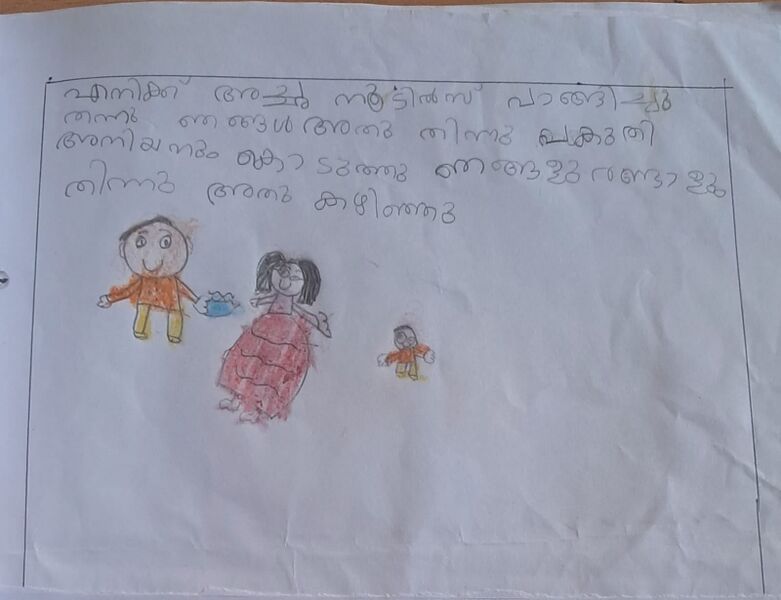 എനിക്ക് അച്ചു നൂഡിൽസ് വാങ്ങിച്ചു
തന്നു ഞങ്ങൾ അതു തിന്നു പകുതി
അനിയനും കൊടുത്തു ഞങ്ങളു രണ്ടാളും
തിന്നു അതു കഴിഞ്ഞു